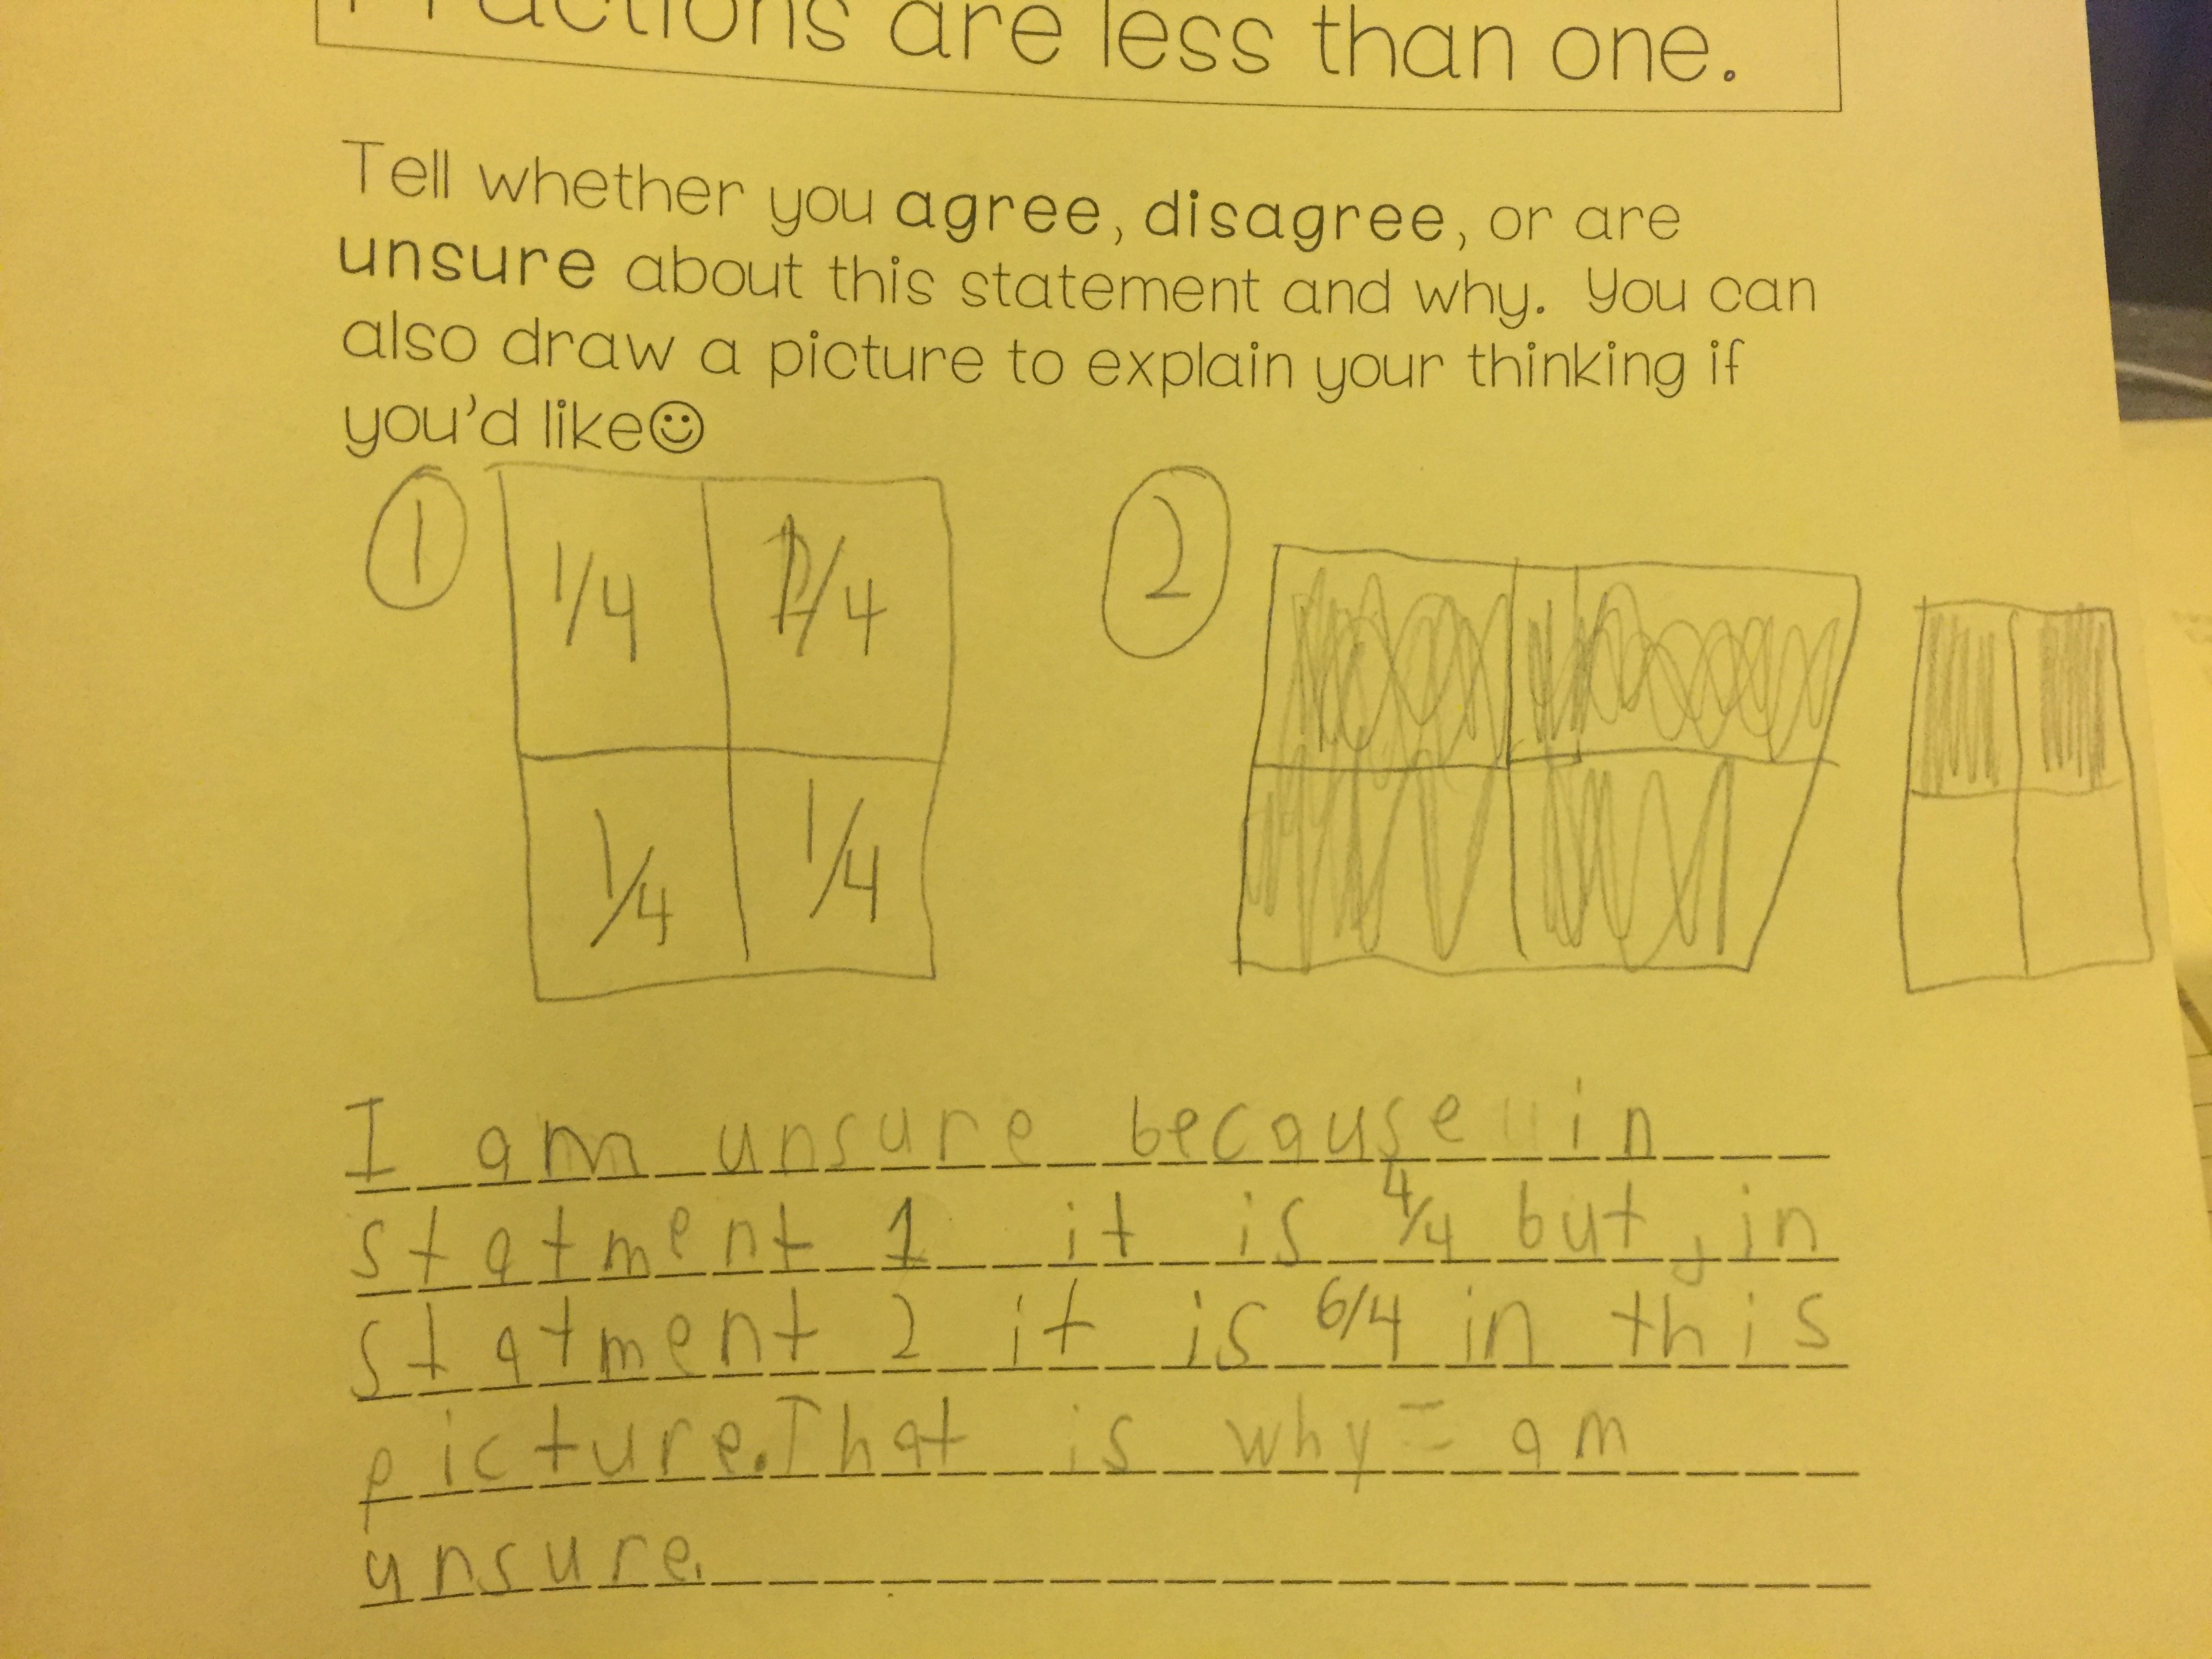 Fractions are less than one.
Tell whether you agree, disagree, or are
unsure about this statement and why. You can
also draw a picture to explain your thinking if
you'd like☺
1
2
1/4 1/4
1/4 1/4
I am unsure because in
statment 1 it is 4/4 but, in
statment 2 it is 6/4 in this
picture. That is why I am
unsure.